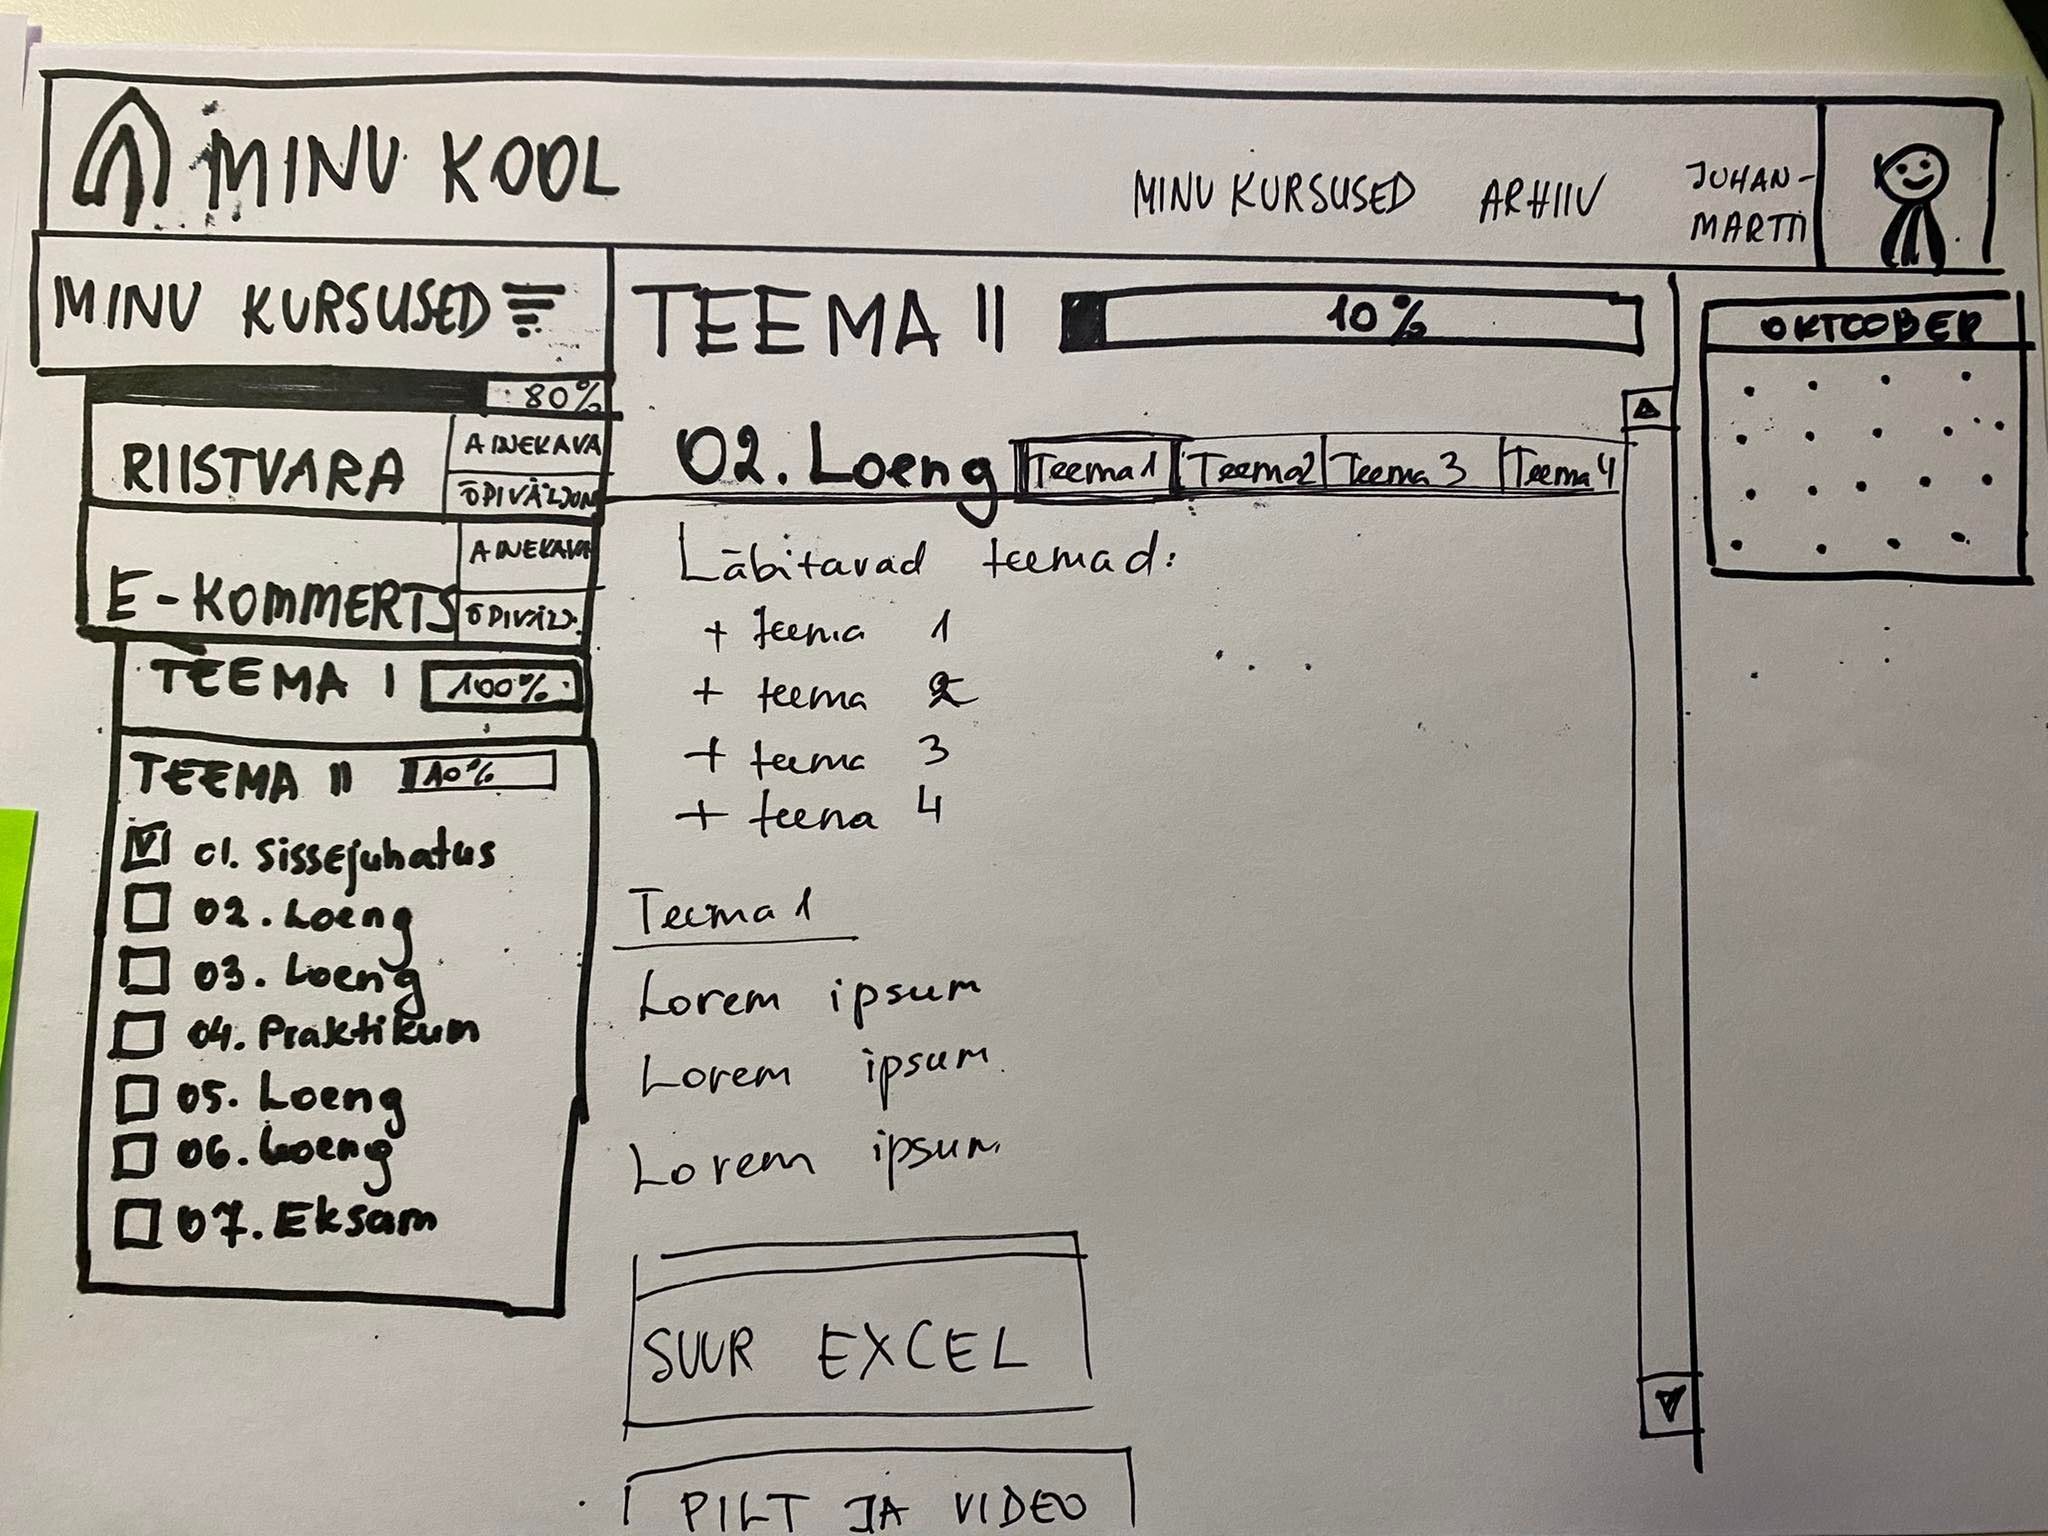 MINU KOOL
MINU KURSUSED ARHIIV JUHAN-
MARTTI
MINU KURSUSED
80%
RIISTVARA
AINEKAVA
ÕPIVÄLJUN
E-KOMMERTS
AINEKAVA
ÕPIVÄLJ.
TEEMA I 100%
TEEMA II 10%
01. Sissejuhatus
02. Loeng
03. Loeng
04. Praktikum
05. Loeng
06. Loeng
07. Eksam
TEEMA II 10%
02. Loeng Teema 1 Teema2 Teema 3 Teema 4
Läbitavad teemad:
+ teema 1
+ teema 2
+ teema 3
+ teema 4
Teema 1
Lorem ipsum
Lorem ipsum.
Lorem ipsum.
SUUR EXCEL
PILT JA VIDEO
OKTOOBER